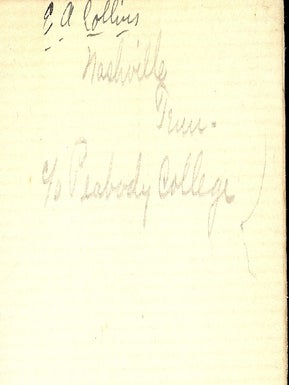 E A Collins
Nashville
Tenn.
c/o Peabody College